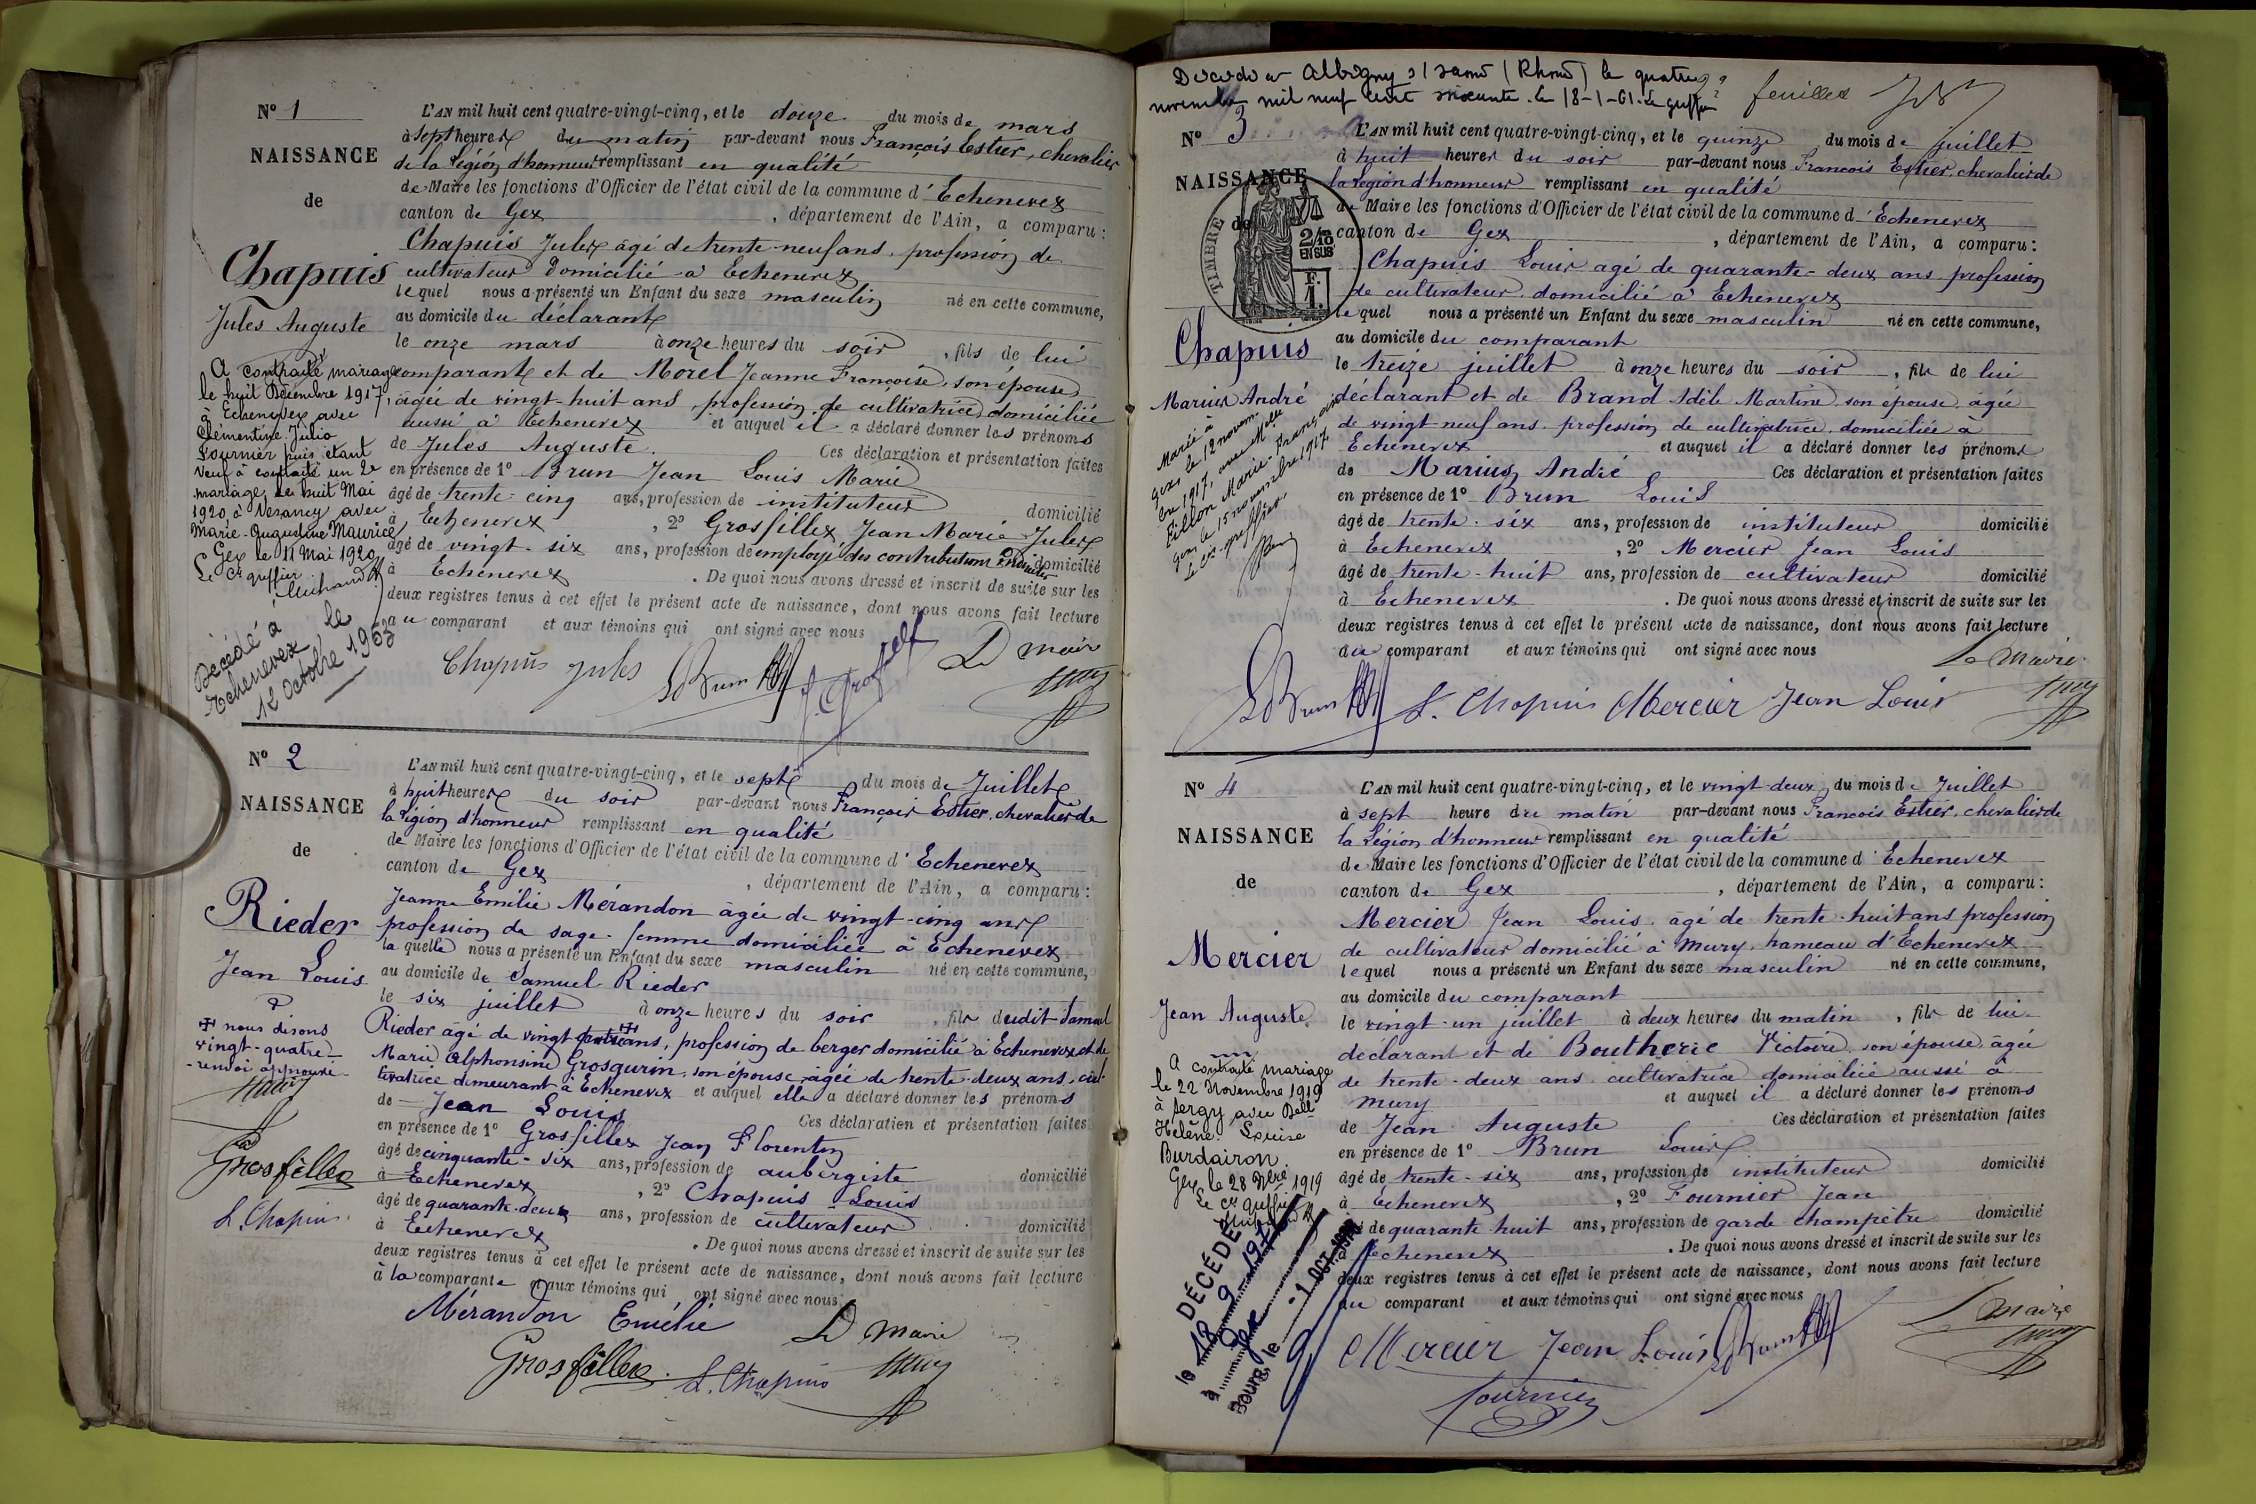 N° 1
NAISSANCE
de
Chapuis
Jules Auguste
A contracté mariage
le huit Décembre 1917,
à Echenevex avec
Clémentine Julia
Fournier puis étant
veuf à contracté un 2e
mariage, le huit Mai
1920 à Vesancy avec
Marie-Augustine Maurice
Gex le 11 Mai 1920
Le Cs greffier
Décédé à
Echenevex le
12 Octobre 1963
L'AN mil huit cent quatre-vingt-cinq, et le douze du mois de mars
à sept heures du matin par-devant nous François Estier, chevalier
de la Légion d'honneur remplissant en qualité
de Maire les fonctions d'Officier de l'état civil de la commune d'Echenevex
canton de Gex, département de l'Ain, a comparu:
Chapuis Jules âgé de trente-neuf ans, profession de
cultivateur domicilié à Echenevex
lequel nous a présenté un Enfant du sexe masculin né en cette commune,
au domicile du déclarant
le onze mars à onze heures du soir, fils de lui
comparant et de Morel Jeanne Françoise, son épouse,
âgée de vingt huit ans, profession de cultivatrice domiciliée
aussi à Echenevex et auquel il a déclaré donner les prénoms
de Jules Auguste. Ces déclaration et présentation faites
en présence de 1° Brun Jean Louis Marie
âgé de trente-cinq ans, profession de instituteur domicilié
à Echenevex, 2° Grosfillex, Jean Marie Jules
âgé de vingt-six ans, profession de employé des contributions Indirectes domicilié
à Echenevex. De quoi nous avons dressé et inscrit de suite sur les
deux registres tenus à cet effet le présent acte de naissance, dont nous avons fait lecture
au comparant et aux témoins qui ont signé avec nous
Chapuis jules LBrun J. Grosfillex Le maire
N° 2
NAISSANCE
de
Rieder
Jean Louis
✠ nous disons
vingt-quatre
renvoi approuvé
Grosfillex
L. Chapuis
L'AN mil huit cent quatre-vingt-cinq, et le sept du mois de Juillet
à huit heures du soir par-devant nous François Estier, chevalier de
la Légion d'honneur remplissant en qualité
de Maire les fonctions d'Officier de l'état civil de la commune d'Echenevex
canton de Gex, département de l'Ain, a comparu:
Jeanne Emélie Mérandon âgée de vingt-cinq ans
profession de sage-femme domiciliée à Echenevex
la quelle nous a présenté un Enfant du sexe masculin né en cette commune,
au domicile de Samuel Rieder
le six juillet à onze heures du soir, fils dudit Samuel
Rieder âgé de vingt ✠ ans, profession de berger domicilié à Echenevex et de
Marie Alphonsine Grosgurin, son épouse, âgée de trente-deux ans, cul-
tivatrice demeurant à Echenevex et auquel elle a déclaré donner les prénoms
de Jean Louis Ces déclaration et présentation faites
en présence de 1° Grosfillex Jean Florentin
âgé de cinquante-six ans, profession de aubergiste domicilié
à Echenevex, 2° Chapuis Louis
âgé de quarante-deux ans, profession de cultivateur domicilié
à Echenevex. De quoi nous avons dressé et inscrit de suite sur les
deux registres tenus à cet effet le présent acte de naissance, dont nous avons fait lecture
à la comparante et aux témoins qui ont signé avec nous
Mérandon Emélie Le Maire
Grosfillex L. Chapuis
Décédé à Albigny s/ Saône (Rhône) le quatre
novembre mil neuf cent soixante. Le 18-1-61. Le greffier
feuillet
N° 3
NAISSANCE
de
TIMBRE
2/10
EN SUS
F.
1.
Chapuis
Marius André
Marié à
Gex, le 12 novem-
bre 1917, avec Melle
Fillon Marie-Françoise
Gex, le 15 novembre 1917.
Le Cs-greffier
L'AN mil huit cent quatre-vingt-cinq, et le quinze du mois de juillet
à huit heures du soir par-devant nous François Estier, chevalier de
la Légion d'honneur remplissant en qualité
de Maire les fonctions d'Officier de l'état civil de la commune d'Echenevex
canton de Gex, département de l'Ain, a comparu:
Chapuis Louis âgé de quarante-deux ans profession
de cultivateur domicilié à Echenevex
lequel nous a présenté un Enfant du sexe masculin né en cette commune,
au domicile du comparant
le treize juillet à onze heures du soir, fils de lui
déclarant et de Brand Adèle Martine son épouse, âgée
de vingt neuf ans, profession de cultivatrice, domiciliée à
Echenevex et auquel il a déclaré donner les prénoms
de Marius André Ces déclaration et présentation faites
en présence de 1° Brun Louis
âgé de trente-six ans, profession de instituteur domicilié
à Echenevex, 2° Mercier Jean Louis
âgé de trente-huit ans, profession de cultivateur domicilié
à Echenevex. De quoi nous avons dressé et inscrit de suite sur les
deux registres tenus à cet effet le présent acte de naissance, dont nous avons fait lecture
au comparant et aux témoins qui ont signé avec nous
Le Maire
LBrun L. Chapuis Mercier Jean Louis
N° 4
NAISSANCE
de
Mercier
Jean Auguste
A contracté mariage
le 22 Novembre 1919
à Sergy avec Delle
Hélène Louise
Burdairon
Gex, le 28 9bre 1919
Le Cs greffier
DÉCÉDÉ
le 18 9 197
à Gex
Bourg, le -1 OCT.
L'AN mil huit cent quatre-vingt-cinq, et le vingt-deux du mois de Juillet
à sept heure du matin par-devant nous François Estier, chevalier de
la Légion d'honneur remplissant en qualité
de Maire les fonctions d'Officier de l'état civil de la commune d'Echenevex
canton de Gex, département de l'Ain, a comparu:
Mercier Jean Louis âgé de trente-huit ans profession
de cultivateur domicilié à Mury, hameau d'Echenevex
lequel nous a présenté un Enfant du sexe masculin né en cette commune,
au domicile du comparant
le vingt-un juillet à deux heures du matin, fils de lui
déclarant et de Boutherie Victoire, son épouse, âgée
de trente-deux ans cultivatrice domiciliée aussi à
Mury et auquel il a déclaré donner les prénoms
de Jean Auguste Ces déclaration et présentation faites
en présence de 1° Brun Louis
âgé de trente-six ans, profession de instituteur domicilié
à Echenevex, 2° Fournier Jean
âgé de quarante huit ans, profession de garde champêtre domicilié
à Echenevex. De quoi nous avons dressé et inscrit de suite sur les
deux registres tenus à cet effet le présent acte de naissance, dont nous avons fait lecture
au comparant et aux témoins qui ont signé avec nous
Le maire
Mercier Jean Louis LBrun
Fournier